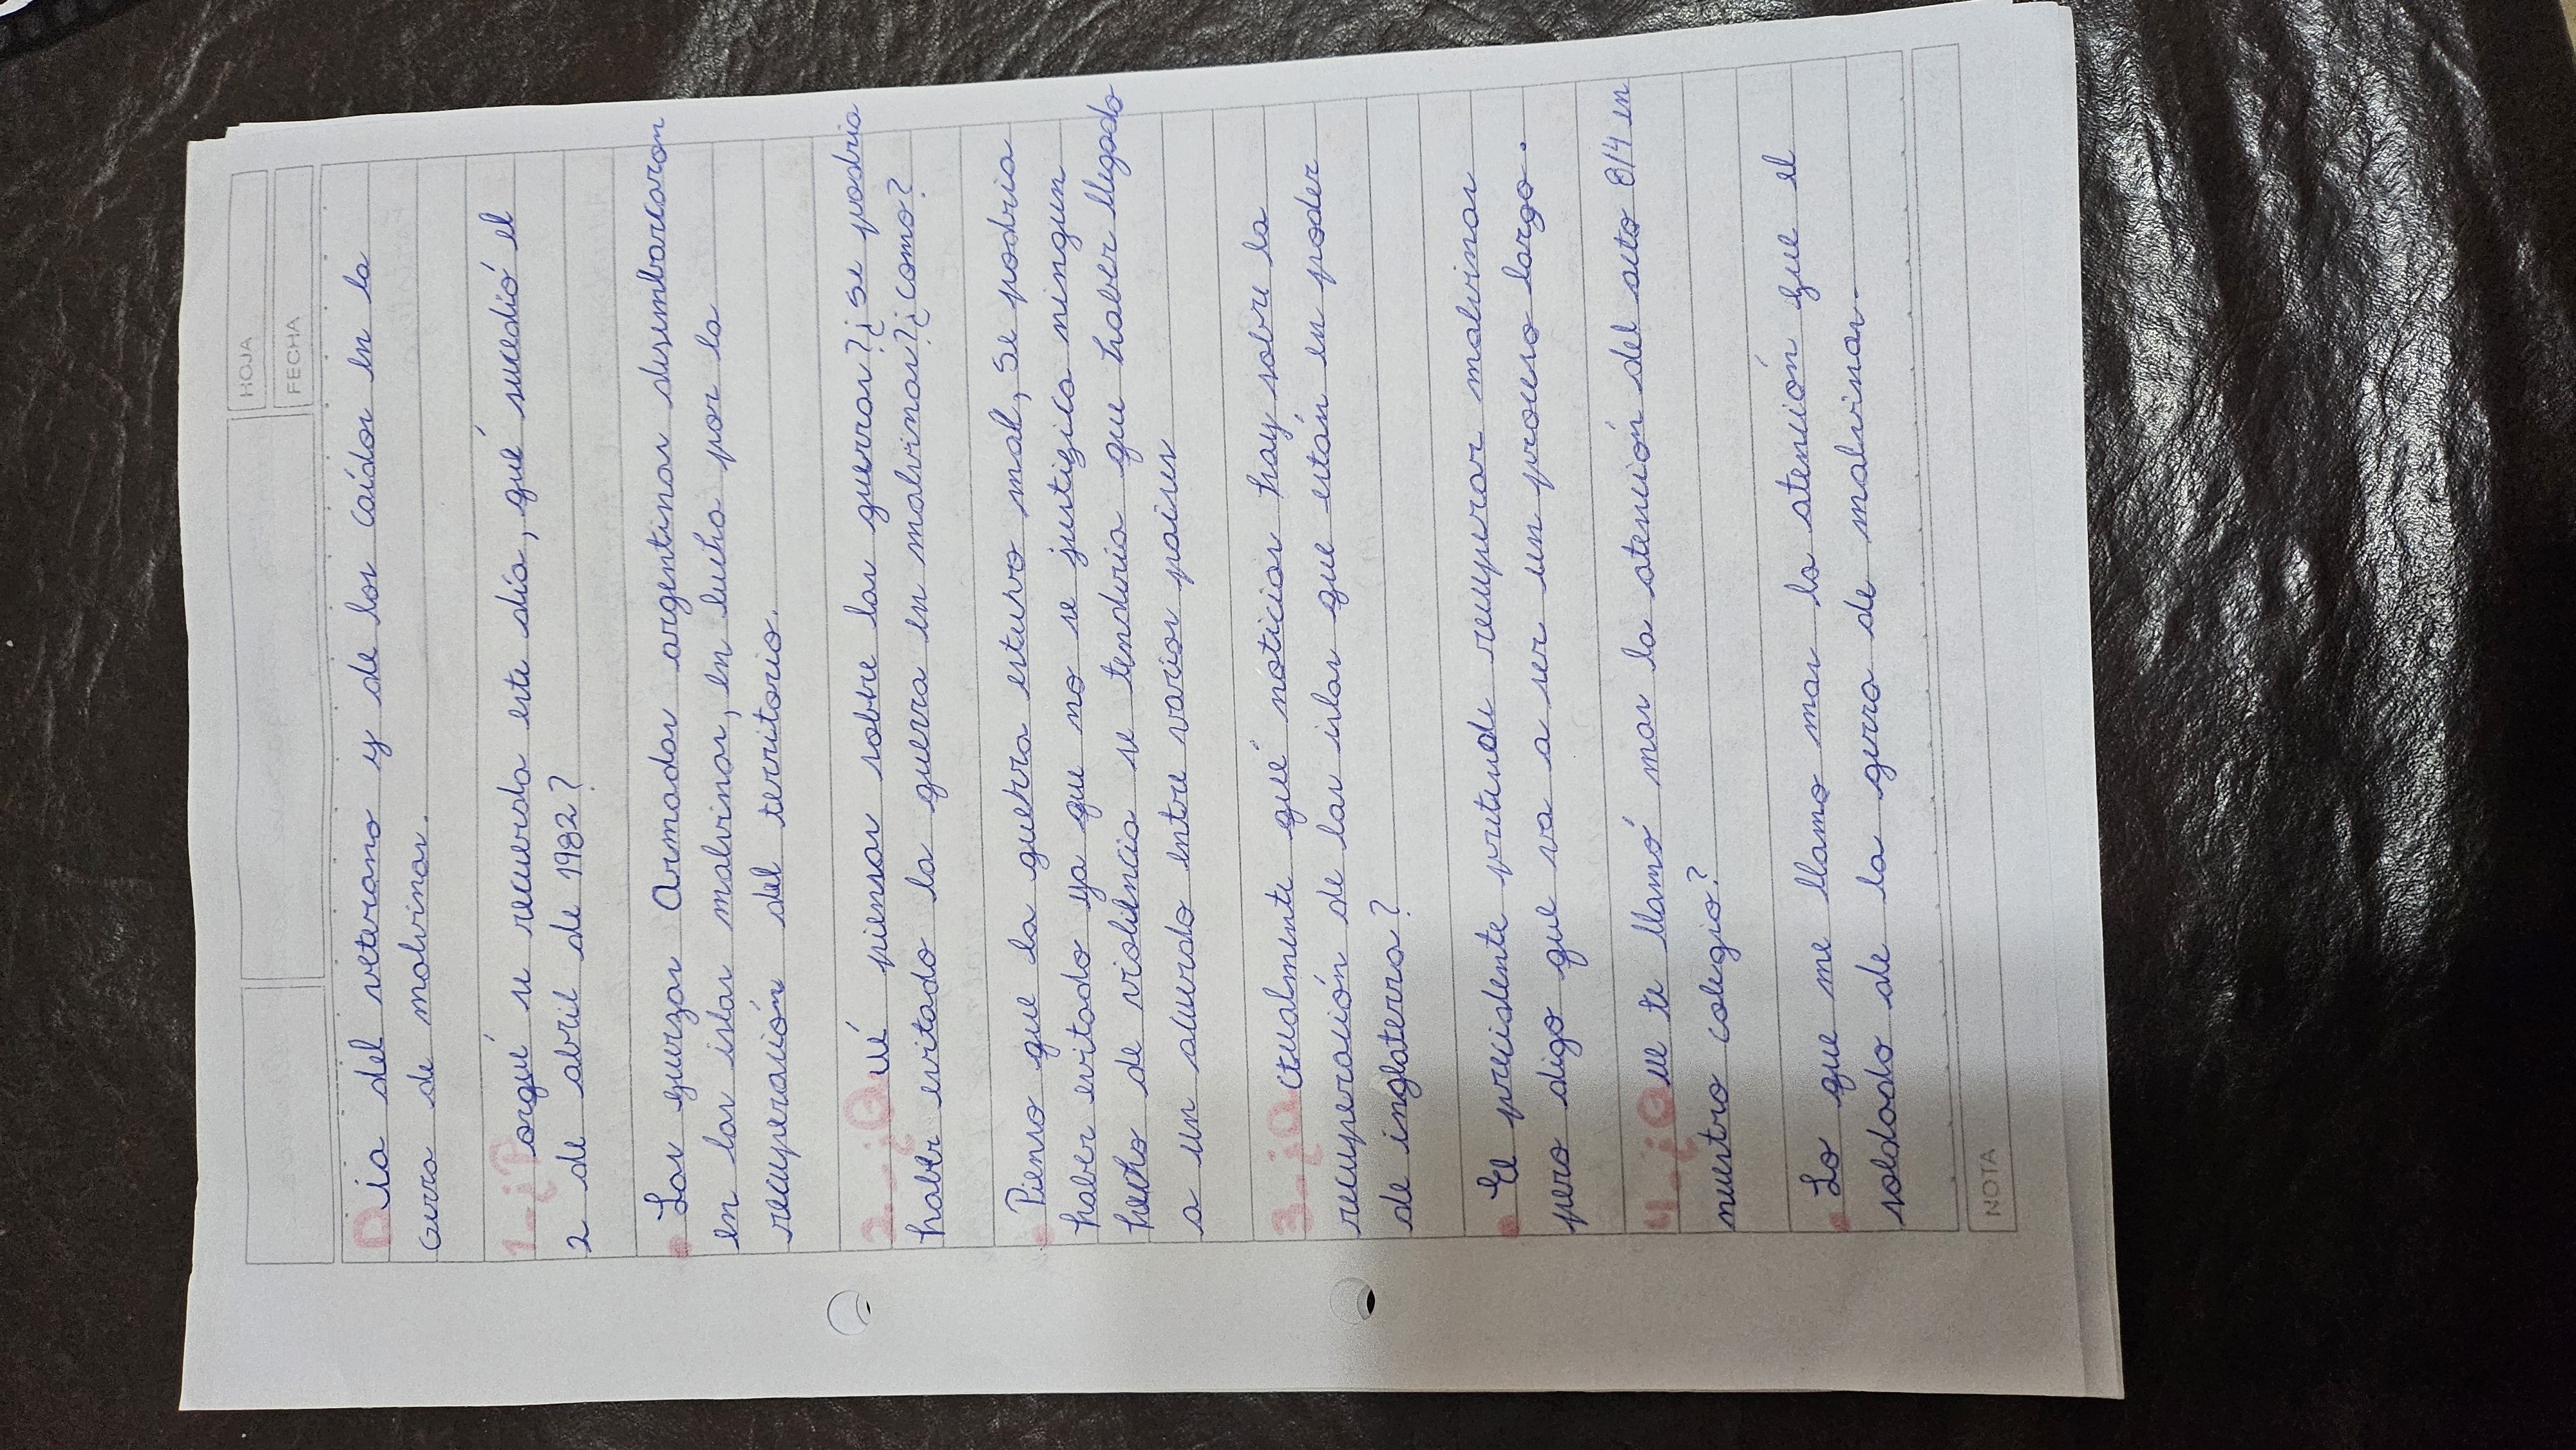 HOJA
FECHA
Dia del veterano y de los caídos en la
Gerra de malvinas.
1-¿Porqué se recuerda este día, qué sucedió el
2 de abril de 1982?
• Las fuerzas Armadas argentinas desembarcaron
en las islas malvinas, en lucha por la
recuperación del territorio.
2-¿Qué piensas sobre las guerras?¿se podria
haber evitado la guerra en malvinas?¿como?
• Pienso que la guerra estuvo mal, se podria
haber evitado ya que no se justifica ningun
hecho de violencia se tenduria que haber llegado
a un acuerdo entre varios paises
3-¿Actualmente qué noticias hay sobre la
recuperación de las islas que están en poder
de inglaterra?
• El precidente pretende recuperar malvinas
pero digo que va a ser un proceso largo.
4-¿Que te llamó mas la atención del acto 8/4 en
nuestro colegio?
• Lo que me llamo mas la atención que el
soldado de la gerra de malvinas.
NOTA